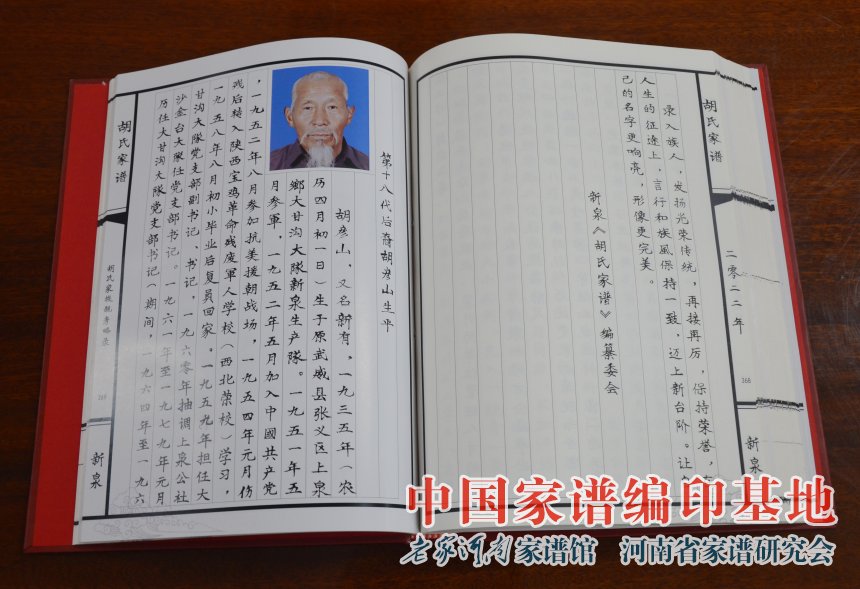 胡氏家谱
二零二二年
368
新泉
录入族人，发扬光荣传统，再接再厉，保持荣誉，在
人生的征途上，言行和族風保持一致，迈上新台阶。让
己的名字更响亮，形像更完美。
新泉《胡氏家谱》编纂委会
第十八代后裔胡彦山生平
胡彦山，又名新有，一九三五年（农
历四月初一日）生于原武威县张义区上泉
鄉大甘沟大隊新泉生产隊。一九五一年五
月参軍，一九五二年五月加入中國共产党
，一九五二年八月参加抗美援朝战场，一九五四年元月伤
残后转入陕西宝鸡革命残废軍人学校（西北荣校）学习，
一九五八年八月初小毕业后复員回家。一九五九年担任大
甘沟大隊党支部副书记、书记，一九六零年抽调上泉公社
沙金台大隊任党支部书记。一九六一年至一九七九年元月
历任大甘沟大隊党支部书记（期间，一九六四年至一九六
胡氏家谱
胡氏家族魏身略录
369
新泉
中国家谱编印基地
老家河南家谱馆 河南省家谱研究会